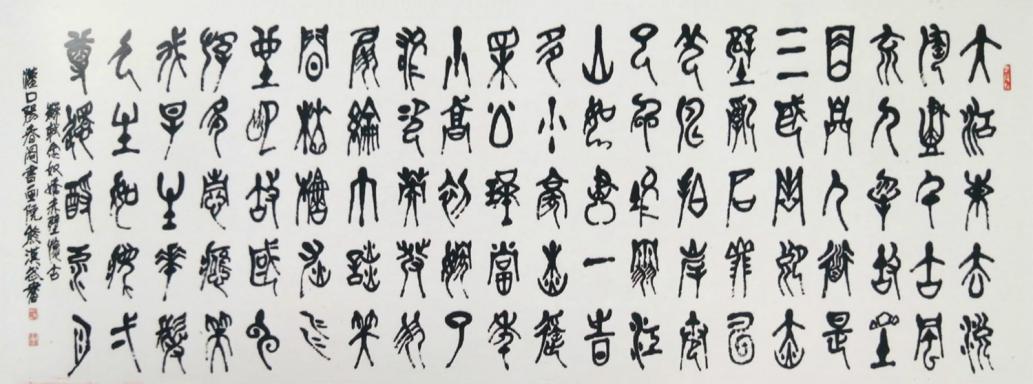 大江東去浪
淘盡千古風
流人物故壘
西邊人道是
三國周郎赤
壁亂石
驚濤拍岸卷
起千堆雪江
山如畫一時
多少豪傑遙
想公瑾當年
小喬初嫁了
雄姿英發羽
扇綸巾談笑
間檣櫓灰飛
煙滅故國神
遊多情應笑
我早生華髮
人生如夢一
尊還酹江月
蘇軾念奴嬌赤壁懷古
漢口春閣書画院熊漢書